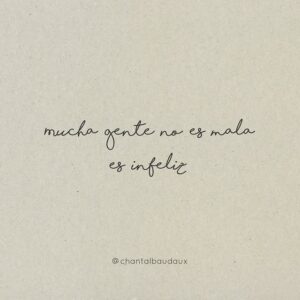 mucha gente no es mala
es infeliz
@chantalbaudaux